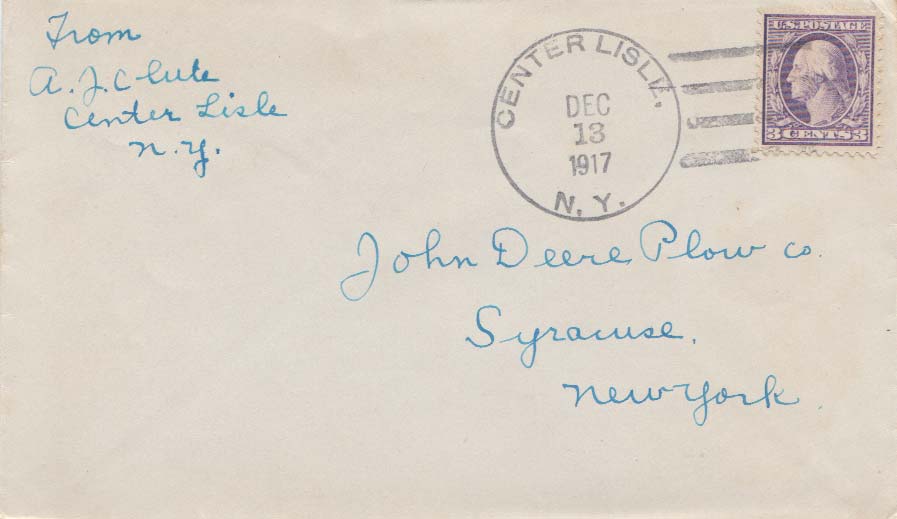 From
A. J. Clute
Center Lisle
N.Y.
CENTER LISLE,
DEC
13
1917
N. Y.
U.S. POSTAGE
3 CENTS 3
John Deere Plow Co.
Syracuse,
New York